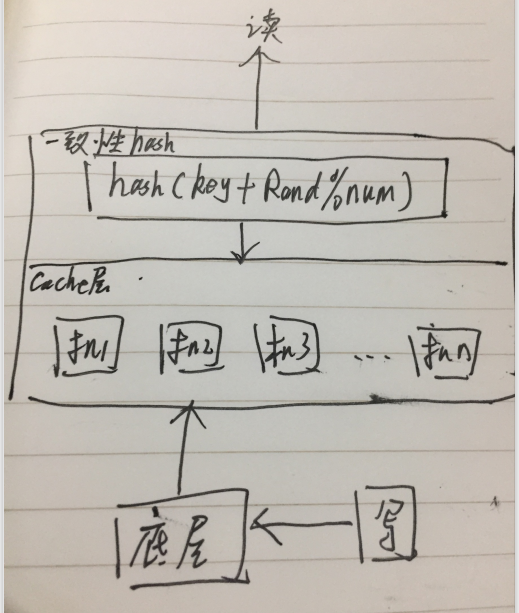 读
一致性hash
hash(key+Rand%num)
Cache层
机1 机2 机3 ... 机n
底层 写